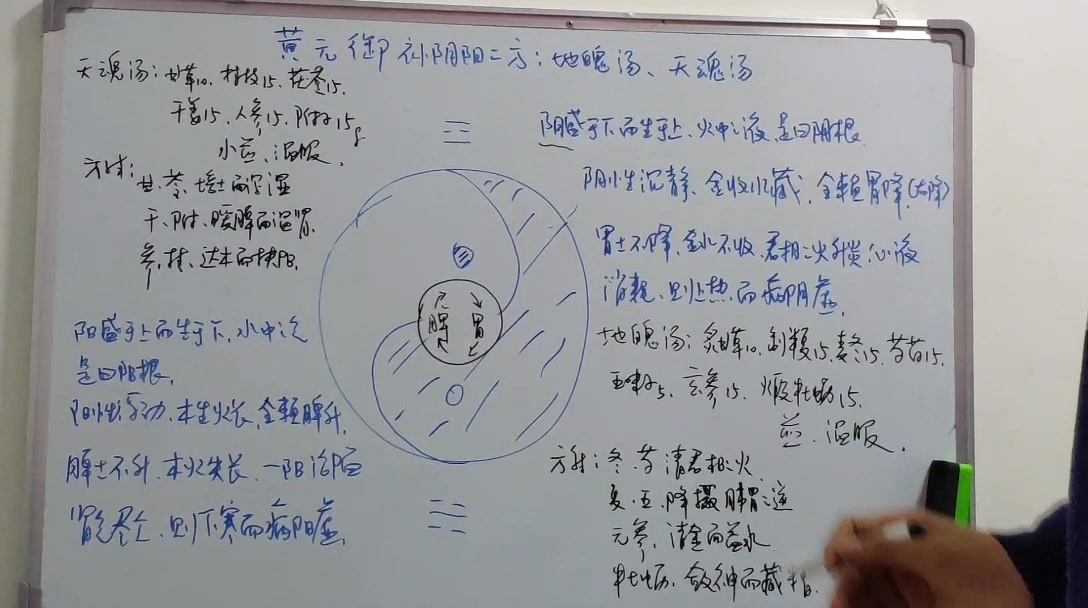 黄元御补阴阳二方：地魄汤、天魂汤
天魂汤：甘草10、桂枝15、茯苓15、
干姜15、人参15、附子15g
小煎、温服、
方解：
甘、苓、培土而泻湿
干、附、暖脾而温肾、
参、桂、达木而扶阳、
阳盛于上而生于下、水中之气
是曰阳根、
阳性浮动、木生火长、全赖脾升、
脾土不升、木火失长、一阳沦陷
肾气寒、则下寒而病阳虚、
脾 胃
阴盛于下而生于上、火中之液、是曰阴根、
阴性沉静、金收水藏、全赖胃降(右降)
胃土不降、金水不收、君相二火升炎、心液
消耗、则上热而病阴虚、
地魄汤：炙甘草10、制半夏15、麦冬15、芍药15、
五味子5、玄参15、煅牡蛎15、
煎、温服、
方解：冬、芍清君相之火、
夏、五、降摄肺胃之逆
元参、清金而益水
牡蛎、敛神而藏精、